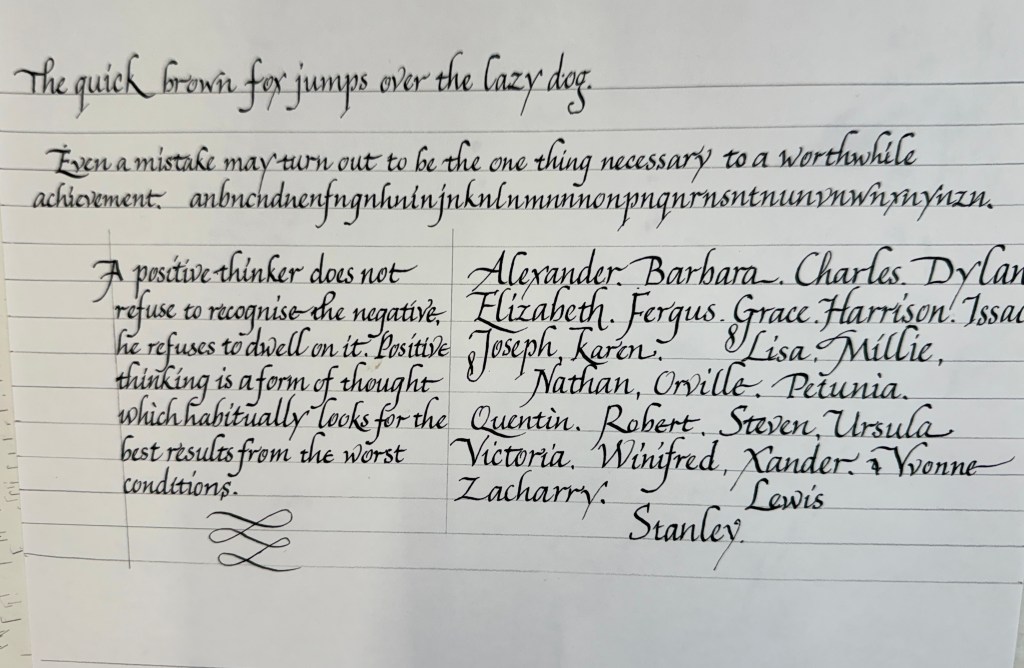 The quick brown fox jumps over the lazy dog.
Even a mistake may turn out to be the one thing necessary to a worthwhile
achievement. anbncndnenfngnhninjnknlnmnnnonpnqnrnsntnunvnwnxnynzn.
A positive thinker does not
refuse to recognise the negative,
he refuses to dwell on it. Positive
thinking is a form of thought
which habitually looks for the
best results from the worst
conditions.
Alexander. Barbara. Charles. Dylan
Elizabeth. Fergus. Grace. Harrison. Issac
Joseph, Karen. Lisa. Millie,
Nathan, Orville. Petunia.
Quentin. Robert. Steven, Ursula
Victoria. Winifred, Xander. & Yvonne
Zacharry. Lewis
Stanley.